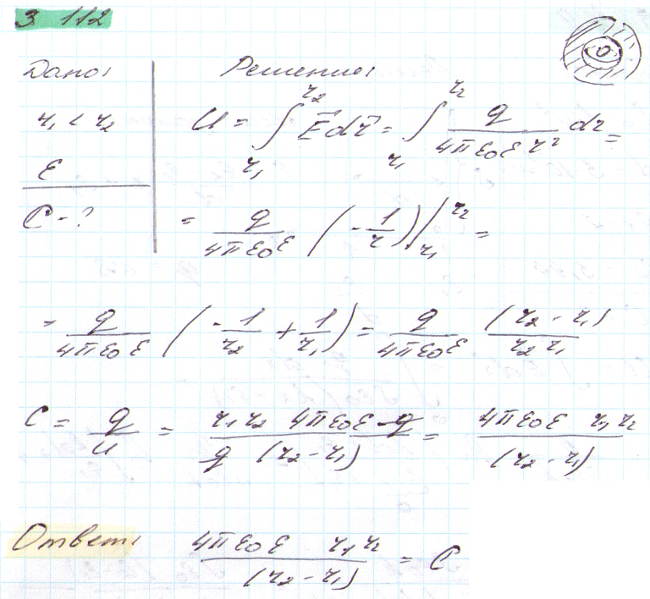 3 112
Дано: Решение:
r₁ < r₂
ε
C - ?
U = ∫_{r₁}^{r₂} E⃗dr⃗ = ∫_{r₁}^{r₂} q/(4πε₀ε r²) dr =
= q/(4πε₀ε) (-1/r)|_{r₁}^{r₂} =
= q/(4πε₀ε) (-1/r₂ + 1/r₁) = q/(4πε₀ε) (r₂ - r₁)/(r₂ r₁)
C = q/U = r₁r₂ 4πε₀ε q/(q (r₂ - r₁)) = 4πε₀ε r₁r₂/(r₂ - r₁)
Ответ: 4πε₀ε r₁r₂/(r₂ - r₁) = C